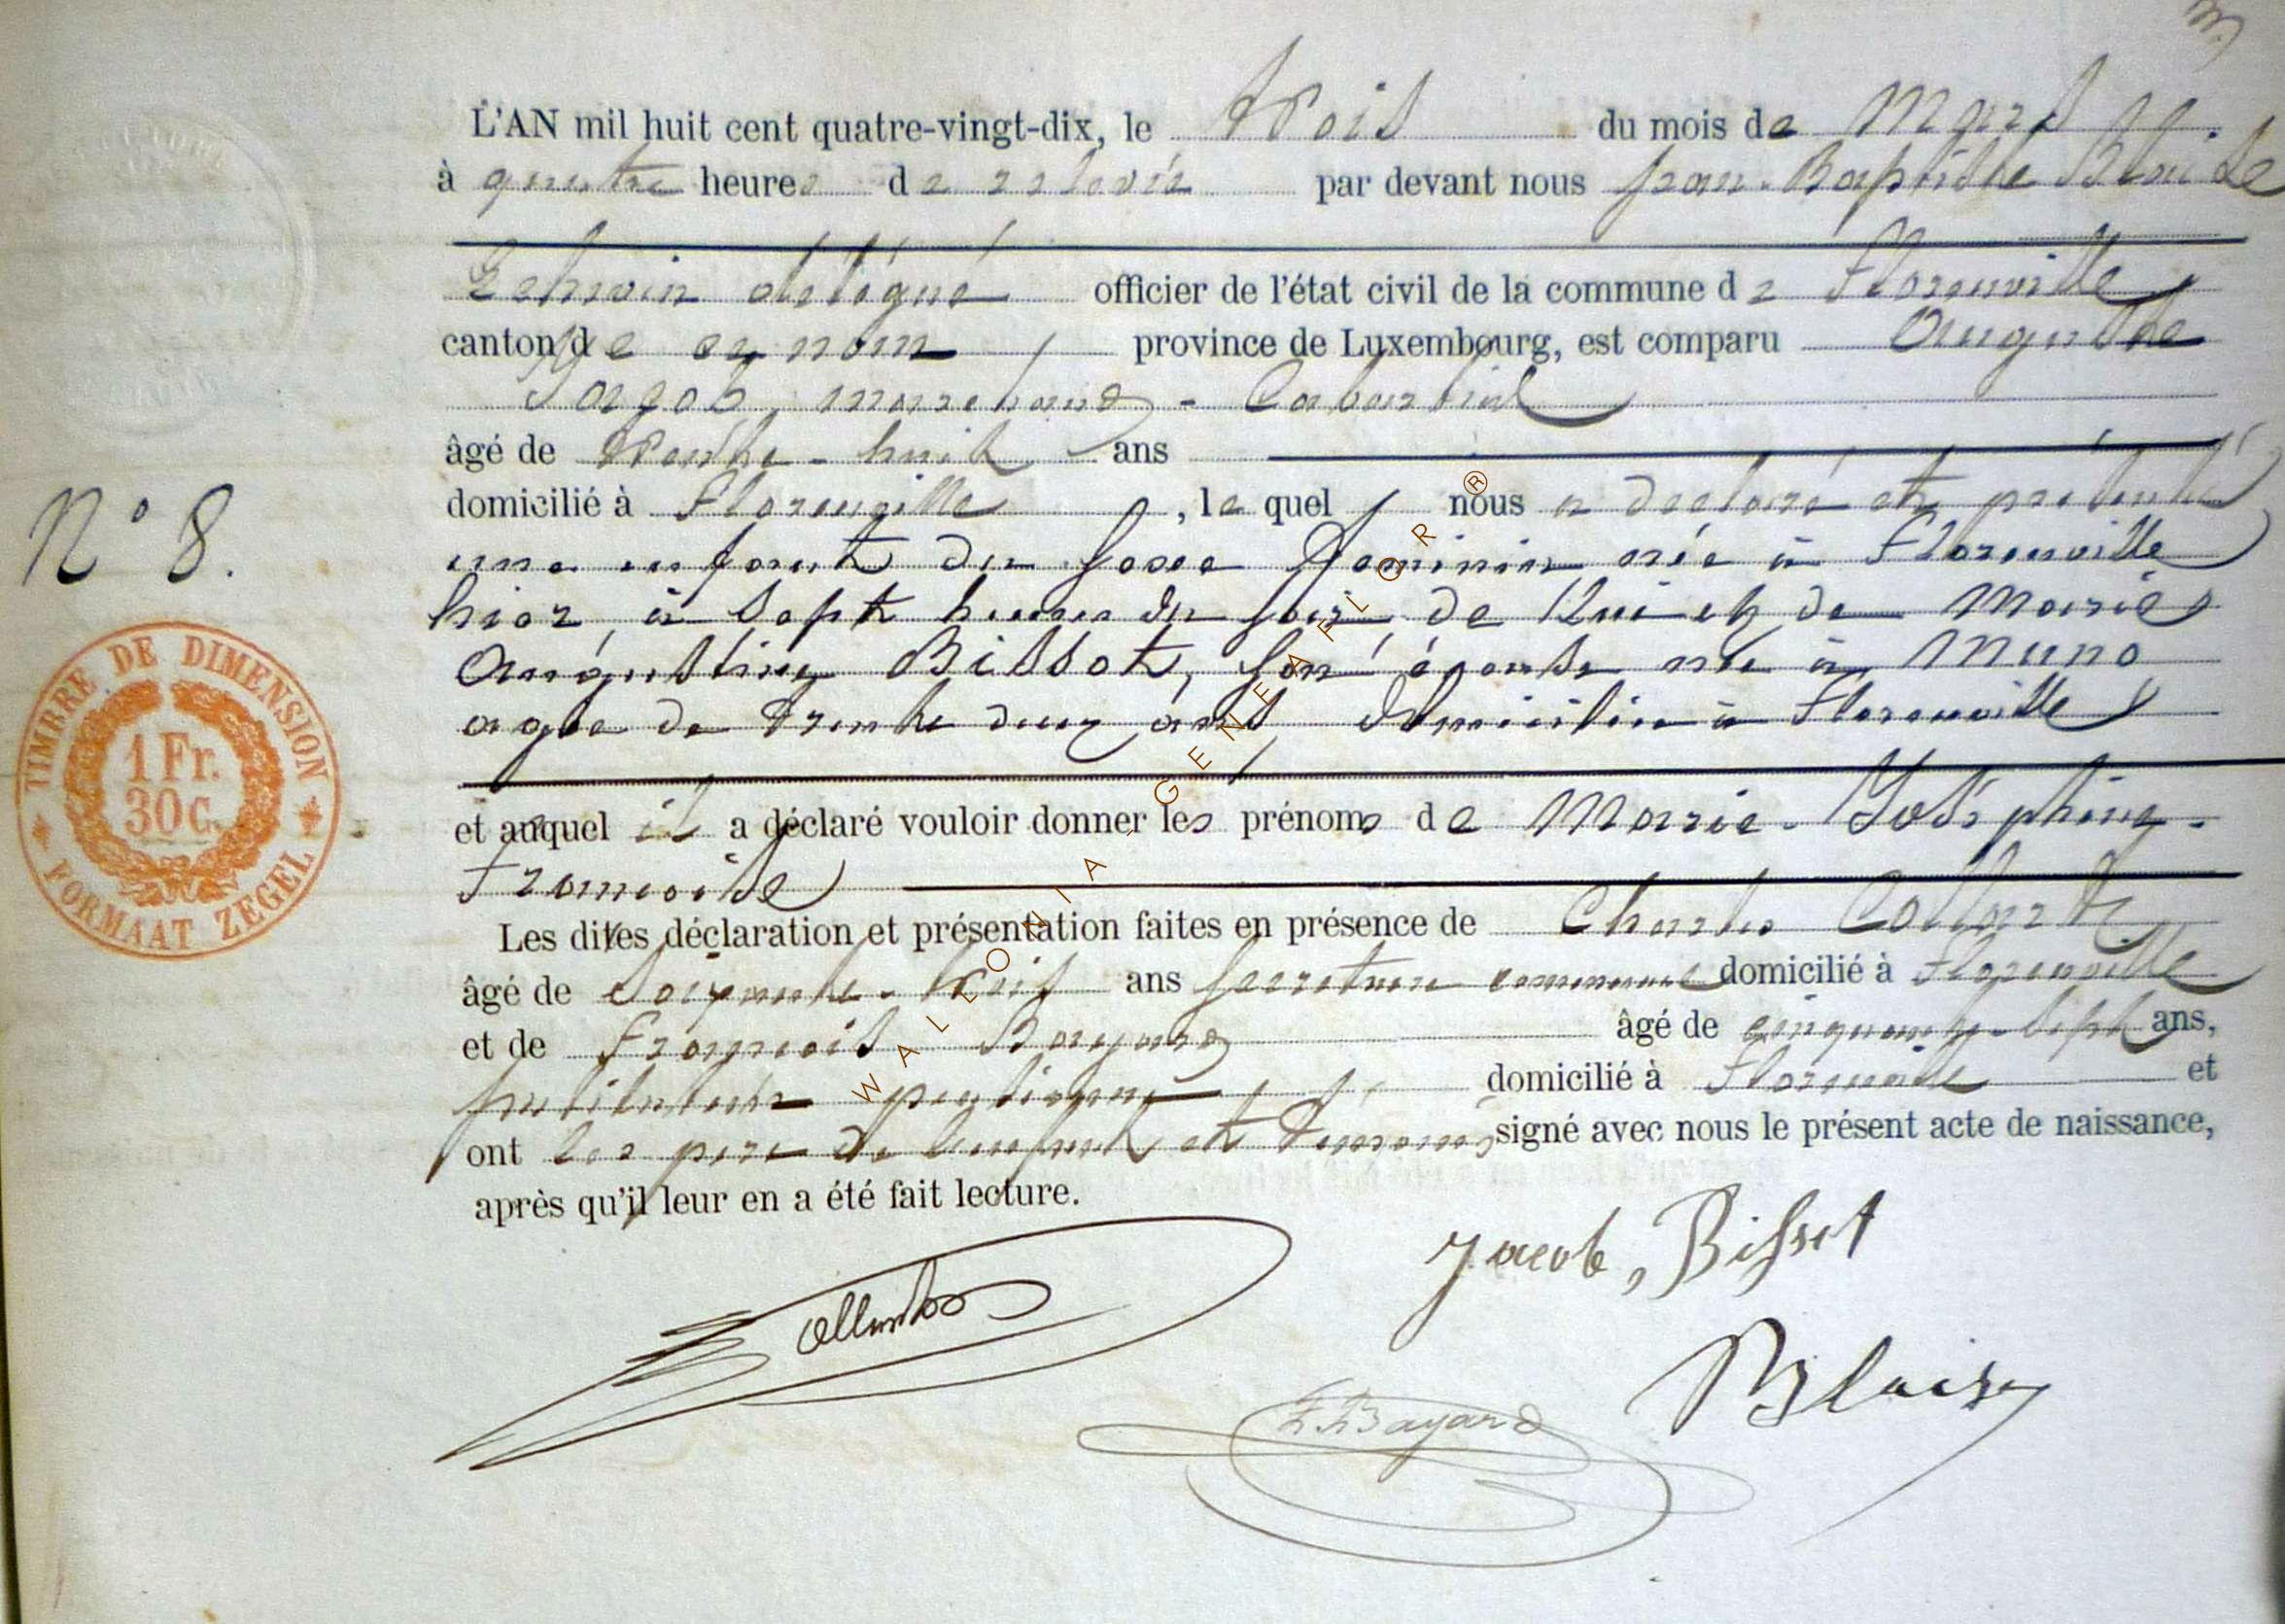 L'AN mil huit cent quatre-vingt-dix, le trois du mois de Mars
à quatre heures de relevée par devant nous Jean-Baptiste Blaise
Echevin délégué officier de l'état civil de la commune de Florenville,
canton de ce nom, province de Luxembourg, est comparu Auguste
Jacob, marchand-Cabaretier
âgé de trente-huit ans
domicilié à Florenville, lequel nous a déclaré et présenté
N° 8.
une enfant du sexe féminin née à Florenville
hier à sept heures du soir de lui et de Marie
Augustine Bissot, son épouse née à Muno
agée de trente deux ans domiciliée à Florenville
TIMBRE DE DIMENSION
1 Fr.
30 C.
FORMAAT ZEGEL
et auquel il a déclaré vouloir donner les prénoms de Marie-Joséphine-
Françoise
Les dites déclaration et présentation faites en présence de Charles Collard
âgé de soixante-neuf ans secrétaire communal domicilié à Florenville
et de François Bayard âgé de cinquante-sept ans,
instituteur pensionné, domicilié à Florenville et
ont les père de l'enfant et témoins signé avec nous le présent acte de naissance,
après qu'il leur en a été fait lecture.
Jacob, Bissot
F. Bayard
Blaise
WALLONIA-GENEAFLOR ®